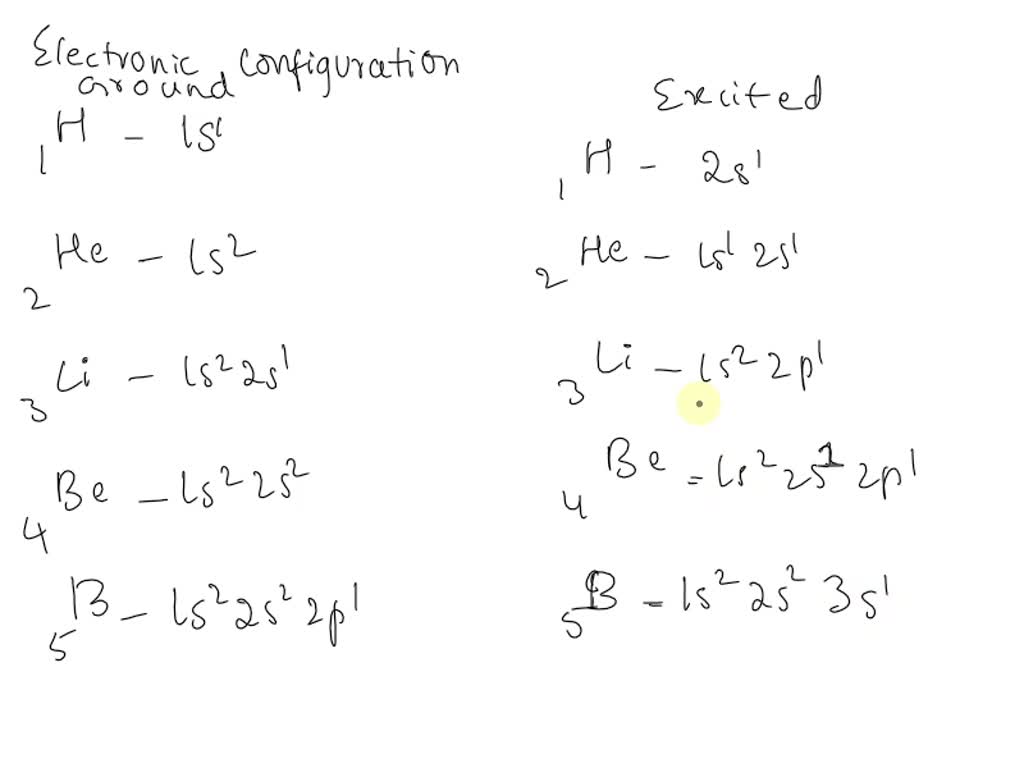 Electronic configuration
Ground
₁H - 1s¹
₂He - 1s²
₃Li - 1s² 2s¹
₄Be - 1s² 2s²
₅B - 1s² 2s² 2p¹
Excited
₁H - 2s¹
₂He - 1s¹ 2s¹
₃Li - 1s² 2p¹
₄Be = 1s² 2s¹ 2p¹
₅B - 1s² 2s² 3s¹